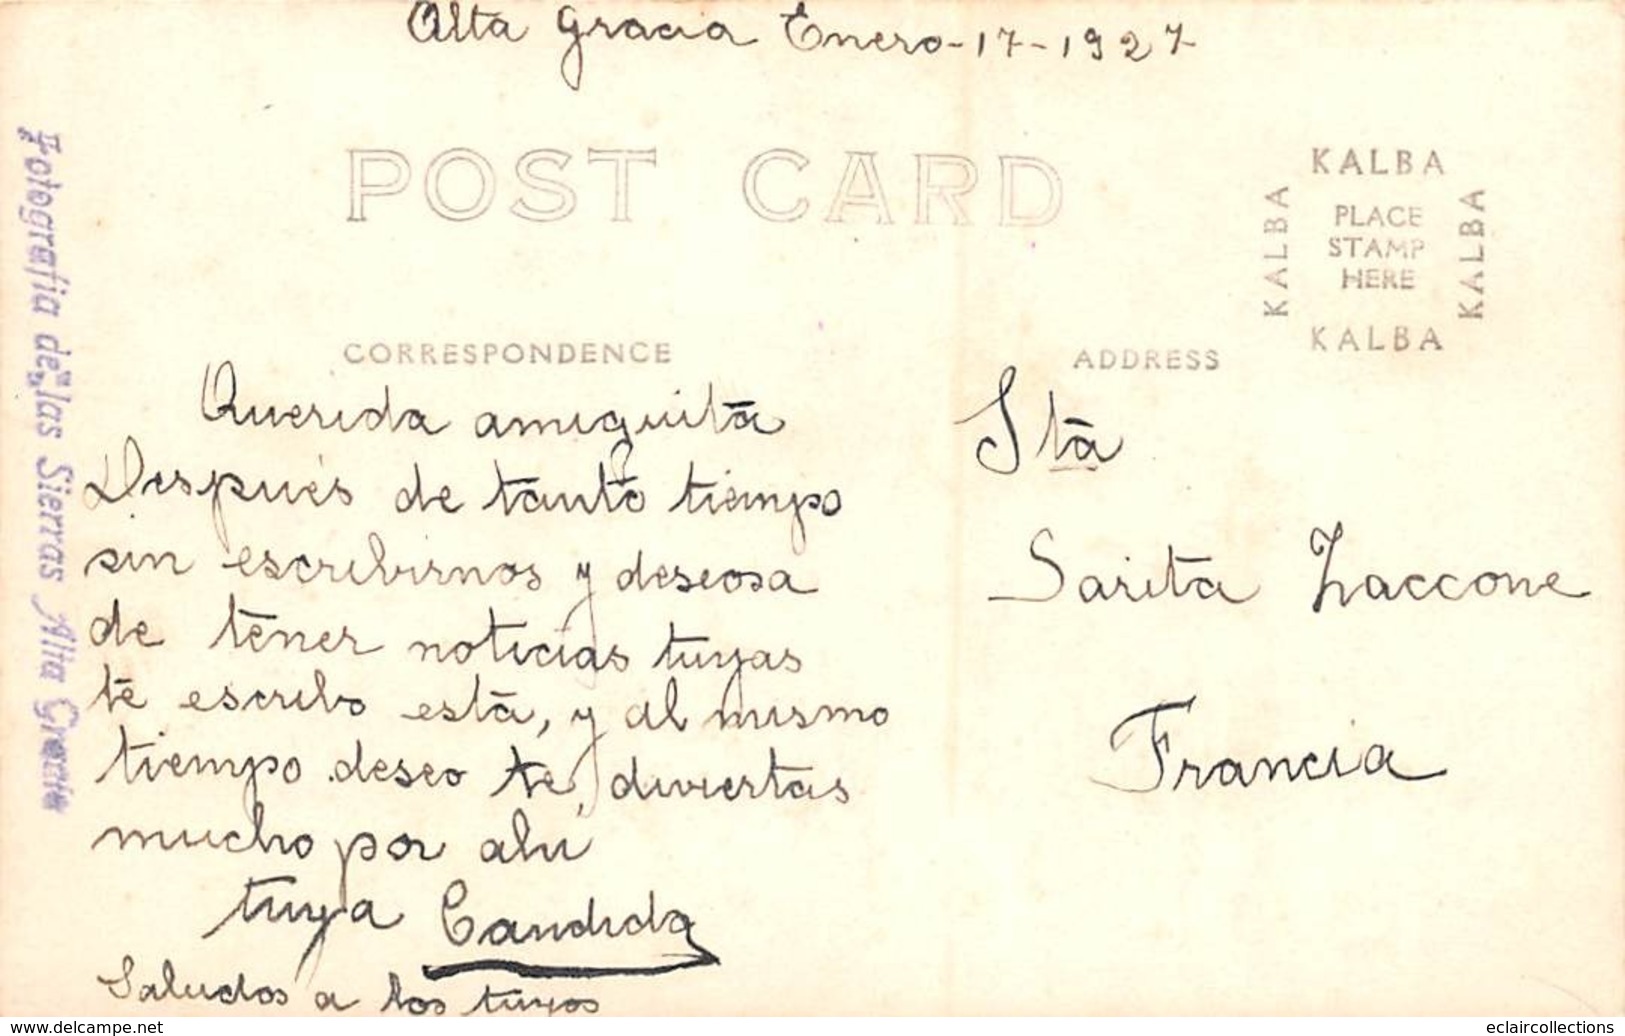 Alta Gracia Enero-17-1927
POST CARD
KALBA
KALBA
PLACE
STAMP
HERE
KALBA
KALBA
Fotografia de las Sierras Alta Gracia
CORRESPONDENCE
ADDRESS
Querida amiguita
Después de tanto tiempo
sin escribirnos y deseosa
de tener noticias tuyas
te escribo esta, y al mismo
tiempo deseo te, diviertas
mucho por ahí
tuya Candida
Saludos a los tuyos
Sta
Sarita Zaccone
Francia
www.delcampe.net
eclaircollections